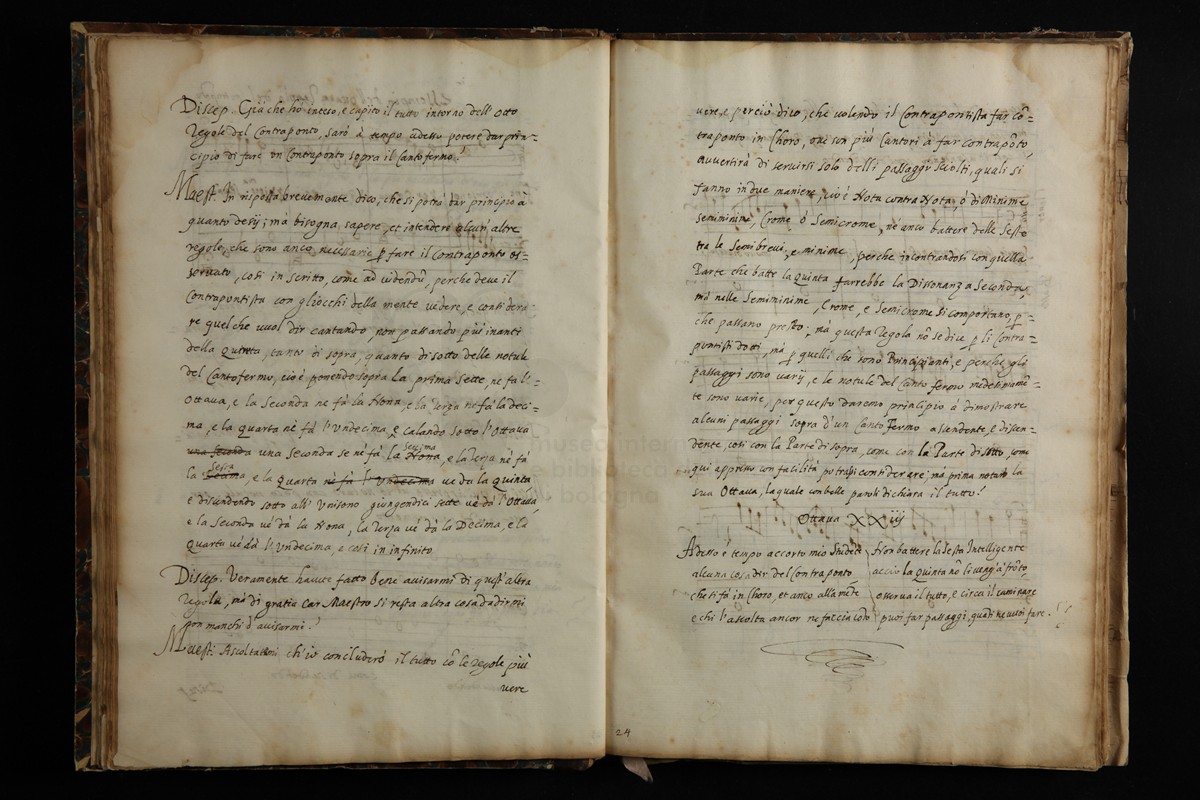 Discep. Già che hò inteso, e capito il tutto intorno dell' otto
regole del Contraponto, sarò à tempo adesso potere dar prin=
cipio di fare un Contraponto sopra il Canto fermo?
Maest. In risposta brevemente dico, che si potrà dar principio à
quanto desij; mà bisogna sapere, et intendere alcun' altre
regole, che sono anco necessarie p fare il Contraponto os=
servato, così in scritto, come ad videndũ, perche deve il
Contrapontista con gl'occhi della mente vedere, e considera=
re quel che vuol dir cantando, non passando più inanti
della Quinta, tanto di sopra, quanto di sotto delle notule
del Canto fermo, cioè ponendo sopra la prima Sette, ne fa l'=
Ottava, e la Seconda ne fà la Nona, e la Terza ne fà la Deci=
ma, e la quarta ne fà l'Undecima, e Calando sotto l'Ottava
una seconda una Seconda se ne fà la Nona settima, e la Terza ne fà
la Decima Sesta, e la Quarta ne fà l'Undecima ve dà la quinta
e discendendo sotto all' Unisono giungendoci sette ve dà l'Ottava,
e la Seconda ve dà la Nona, la Terza ve dà la Decima, e la
Quarta ve dà l'Undecima, e così in infinito
Discep. Veramente havete fatto bene avisarmi di quest' altra
regola, mà di gratia Car Maestro si resta altra cosa da dirmi
non manchi d'avisarmi?
Maest. Ascoltatemi ch'io concluderò il tutto cõ le regole più
vere
vere, e perciò dico, che volendo il Contrapontista far cõ=
traponto in Choro, ove son più Cantori à far contrapõto,
avvertirà di servirsi solo delli passaggi sciolti, quali si
fanno in due maniere, cioè Nota contra Nota, ò di Minime
Semiminime, Crome ò Semicrome, ne anco battere delle Seste
tra le Semibrevi, e minime, perche incontrandosi con quella
Parte che batte la Quinta farrebbe la Dissonanza Seconda,
mà nelle Semiminime, Crome, e Semicrome si comportano, p=
che passano presto; mà questa regola nõ se dice p li Contra=
puntisti dotti, mà p quelli che sono Principianti, e perche gli
passaggi sono varij, e le notule del Canto fermo medesimamẽ=
te sono varie, per questo daremo principio à dimostrare
alcuni passaggi sopra d'un Canto Fermo ascendente, e discen=
dente, così con la Parte di sopra, come con la Parte di sotto, come
qui appresso con facilità potrassi considerare; mà prima notate la
sua Ottava, la quale con belle paroli dichiara il tutto?
Ottava XXiij
Adesso è tempo accorto mio Studente
alcuna cosa dir del Contraponto
che si fà in Choro, et anco alla mẽte
e chi l'ascolta ancor ne faccia coto
Non battere la Sesta Intelligente
acciò la Quinta nõ li vengi à frõto,
osserva il tutto, e circa il caminare
puoi far passaggi, quanti ne vuoi fare.
24